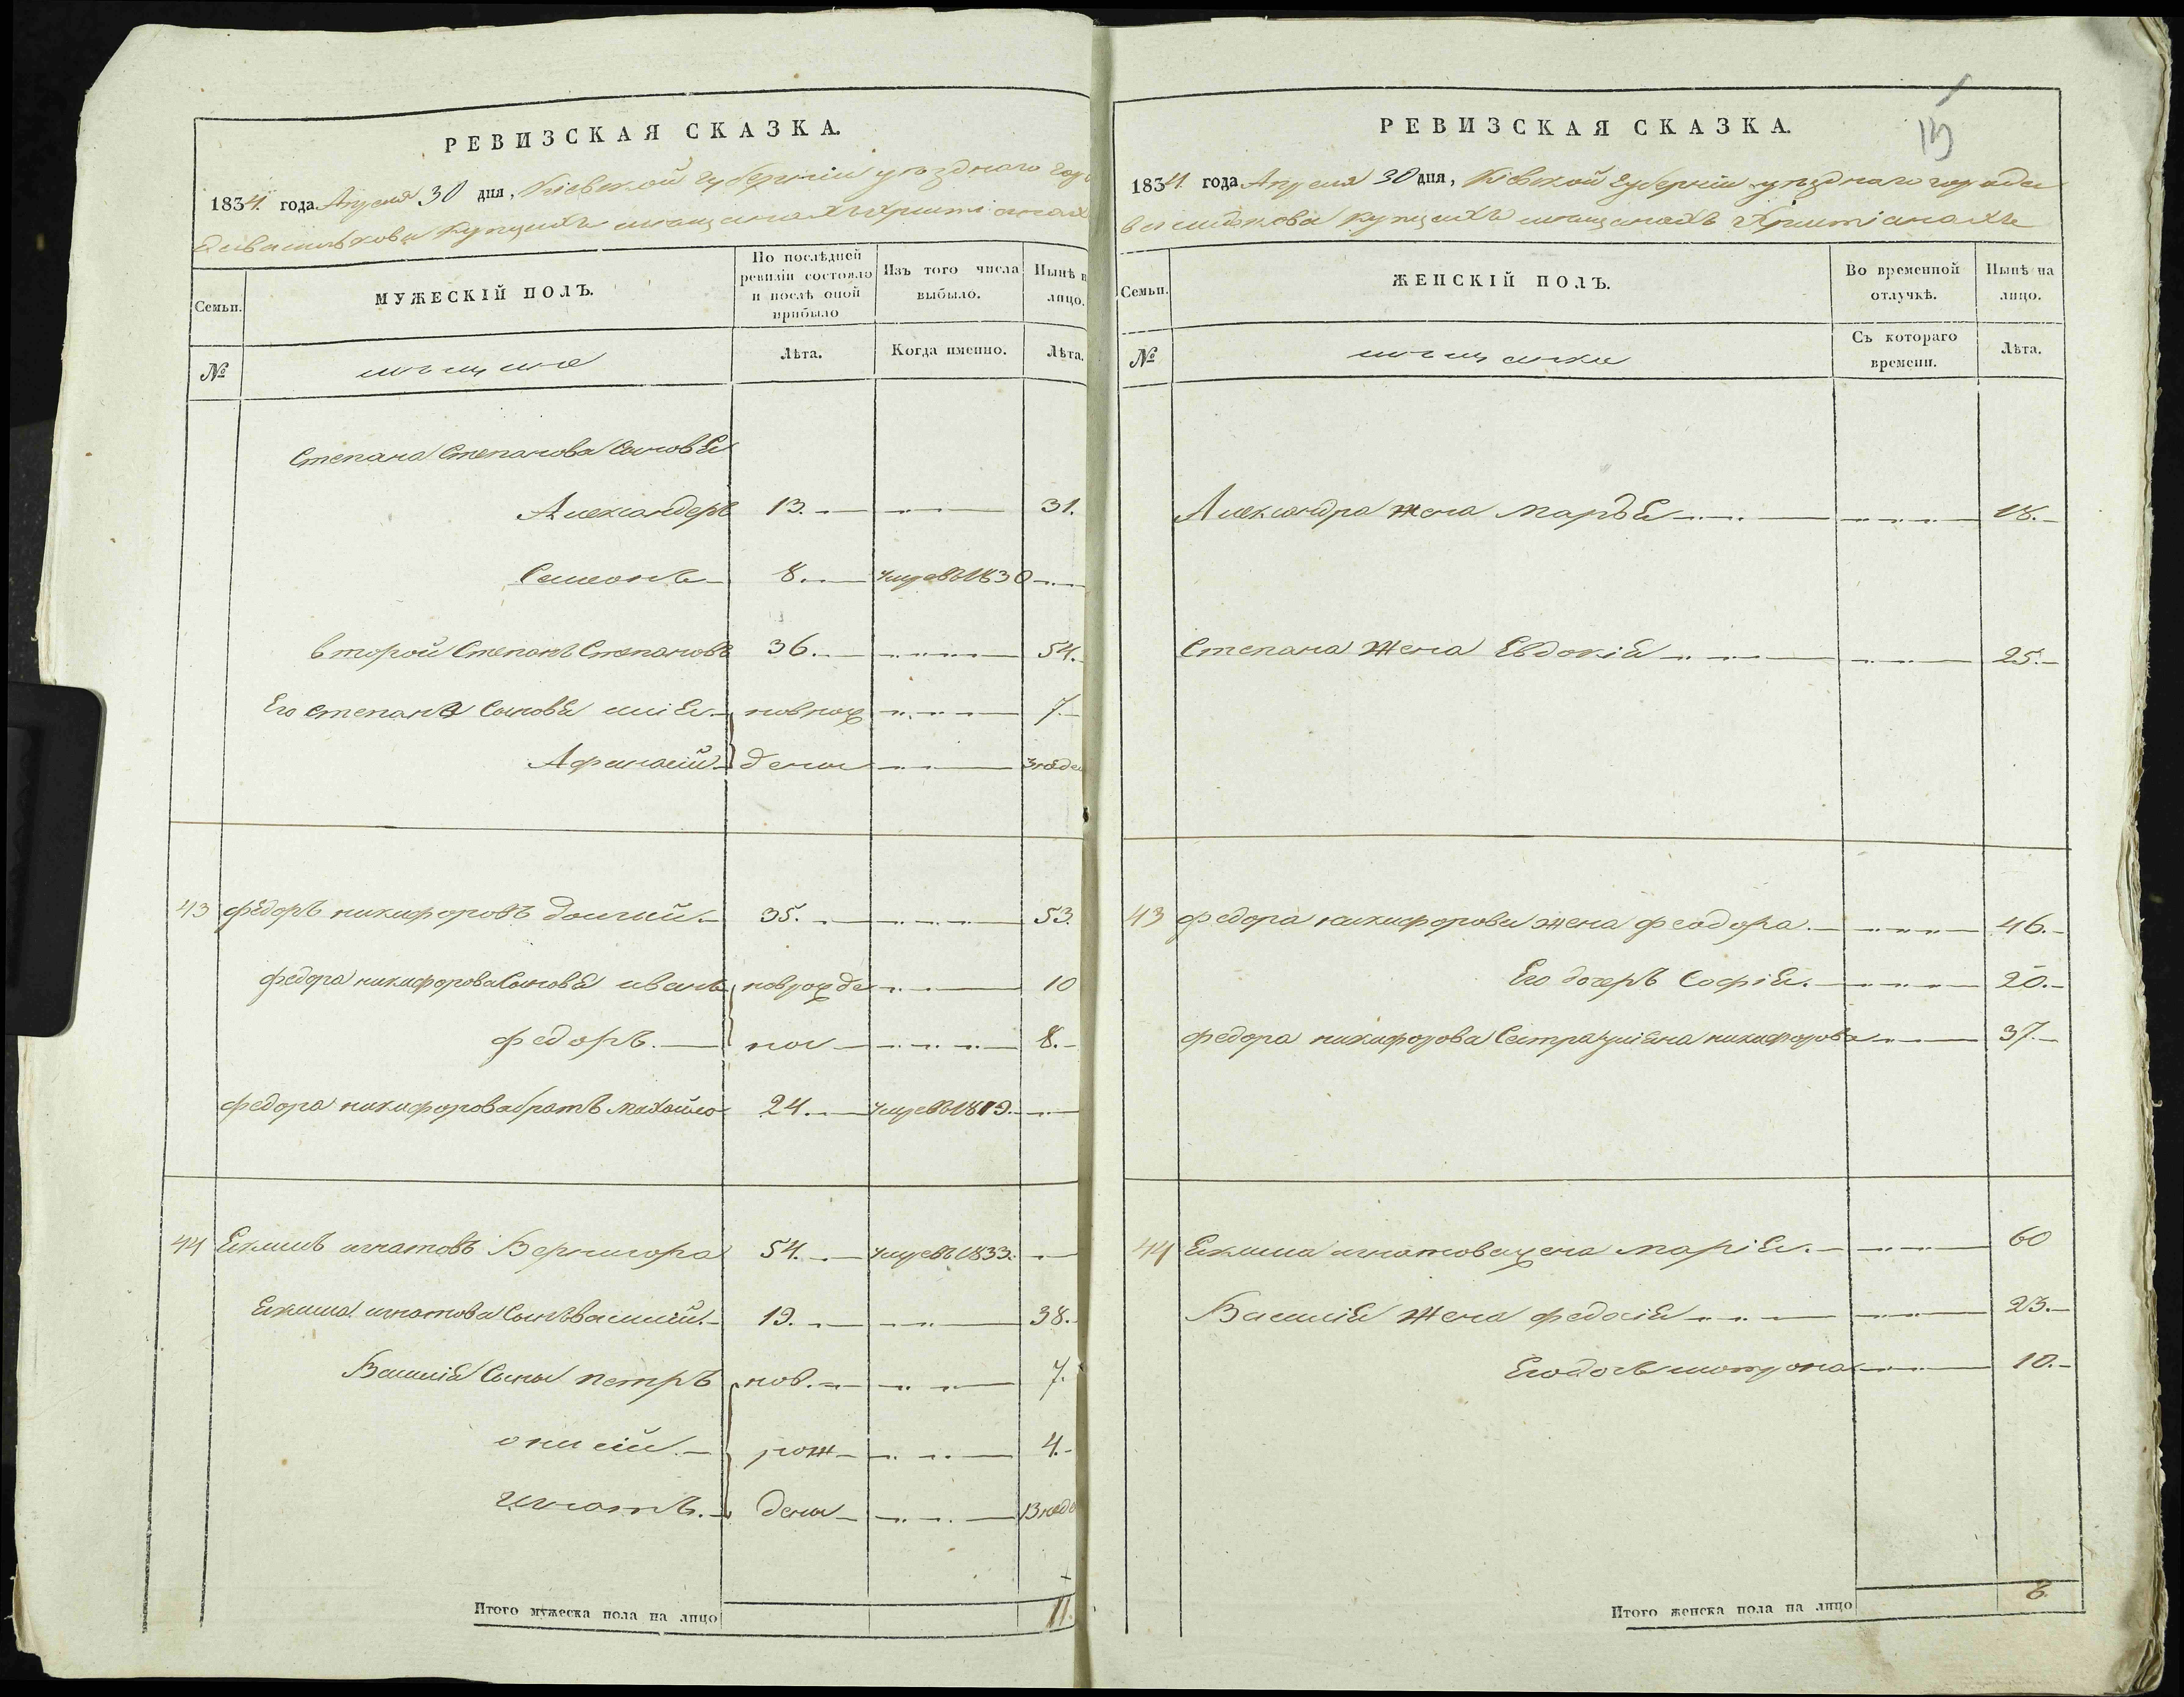 РЕВИЗСКАЯ СКАЗКА.
1834. года Апреля 30 дня, Кіевской губерніи уѣзднаго горо
да василькова купцахъ мещанахъ христіанах
Семьи.
МУЖЕСКІЙ ПОЛЪ.
По послѣдней ревизіи состояло и послѣ оной прибыло
Изъ того числа выбыло.
Нынѣ н лицо.
№
мещане
Лѣта.
Когда именно.
Лѣта.
Степана Степанова Сыновья
Александеръ 13. 31.
Семенъ 8. умре въ 1830
второй Степанъ Степановъ 36. 54.
Его степана Сыновья илія новрож 7.
Афанасий дены 3 неде
43 федоръ никифоровъ долгий 35. 53.
федора никифорова Сыновья иванъ новрожде 10
федоръ. ны 8.
федора никифорова братъ михайло 24. умре въ 1819.
44 Екимъ игнатовъ Вернигора 54. умре въ 1833.
Екима игнатова Сынъ василий. 19. 38.
Василія Сыны петръ нов. 7.
онисій. рож 4.
Игнатъ. дены 13 неде
Итого мужеска пола на лицо 11.
РЕВИЗСКАЯ СКАЗКА.
1834. года Апреля 30 дня, Кіевской губерніи уѣзднаго города
василькова купцахъ мещанахъ христіанахъ
Семьи.
ЖЕНСКІЙ ПОЛЪ.
Во временной отлучкѣ.
Нынѣ на лицо.
№
мещанки
Съ котораго времени.
Лѣта.
Александра жена марья 18.
Степана жена Евдокія 25.
43 федора никифорова жена феодора. 46.
Его дочеръ Софія. 20.
федора никифорова Сестра улияна никифорова 37.
44 Екима игнатова жена марія. 60
Василія жена федосія 23.
Его дочь мотрона 10.
Итого женска пола на лицо 8.